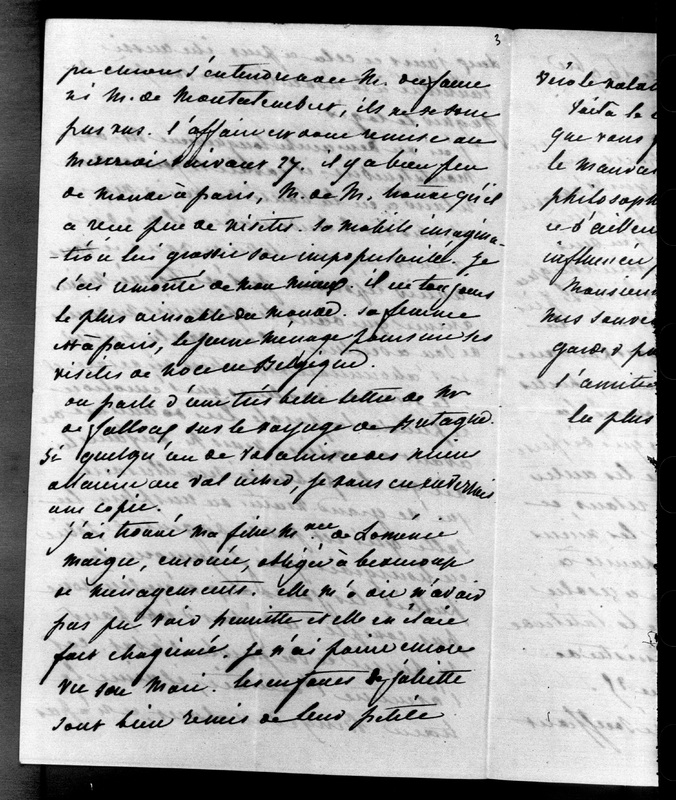 3
pu encore s'entendre avec M. du faure
ni M. de Montalembert, ils ne se sont
pas vus. l'affaire est donc remise au
mercredi suivant 27. il y a bien peu
de monde à paris, M. de M. trouve qu'il
a reçu peu de visites. sa mobile imagina-
-tion lui grossit son impopularité. je
l'ai remonté de mon mieux. il est toujours
le plus aimable du monde. sa femme
est à paris, le jeune ménage poursuit ses
visites de noce en Belgique.
on parle d'une très belle lettre de Mr
de falloux sur le voyage de Bretagne.
Si quelqu'un de vos amis
au val richer, je vous en
une copie.
j'ai trouvé ma fille Mme de Loménie
maigre, enrouée, obligée à beaucoup
de ménagements. elle m'a dit n'avoir
pas pu voir henriette et elle en était
fort chagrinée. je n'ai point encore
vu son mari. les enfants de juliette
sont bien remis de leur petite
vérole volan
Voilà le
que vous
le mauvais
philosoph
et d'ailleu
influence
Monsieur
mes souve
gardez
l'amitié
la plus